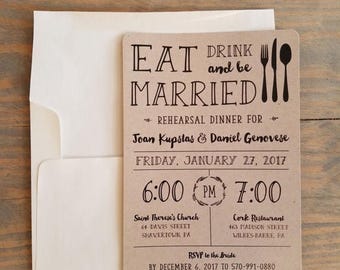 EAT DRINK
and be
MARRIED
REHEARSAL DINNER FOR
Joan Kupstas & Daniel Genovese
FRIDAY, JANUARY 27, 2017
6:00 PM 7:00
Saint Therese's Church
64 DAVIS STREET
SHAVERTOWN PA
Cork Restaurant
463 MADISON STREET
WILKES-BARRE, PA
RSVP to the Bride
BY DECEMBER 6, 2017 TO 570-991-0880